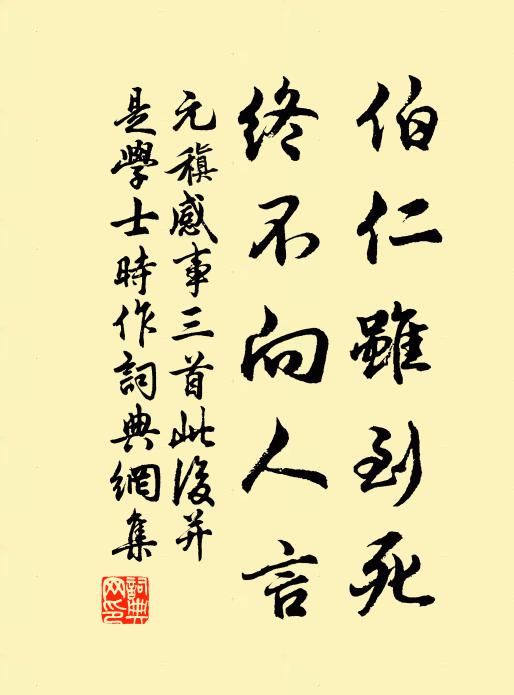 伯仁雖到死
終不向人言
元稹感事三首此後并
是學士時作詞典網集
詞典網印